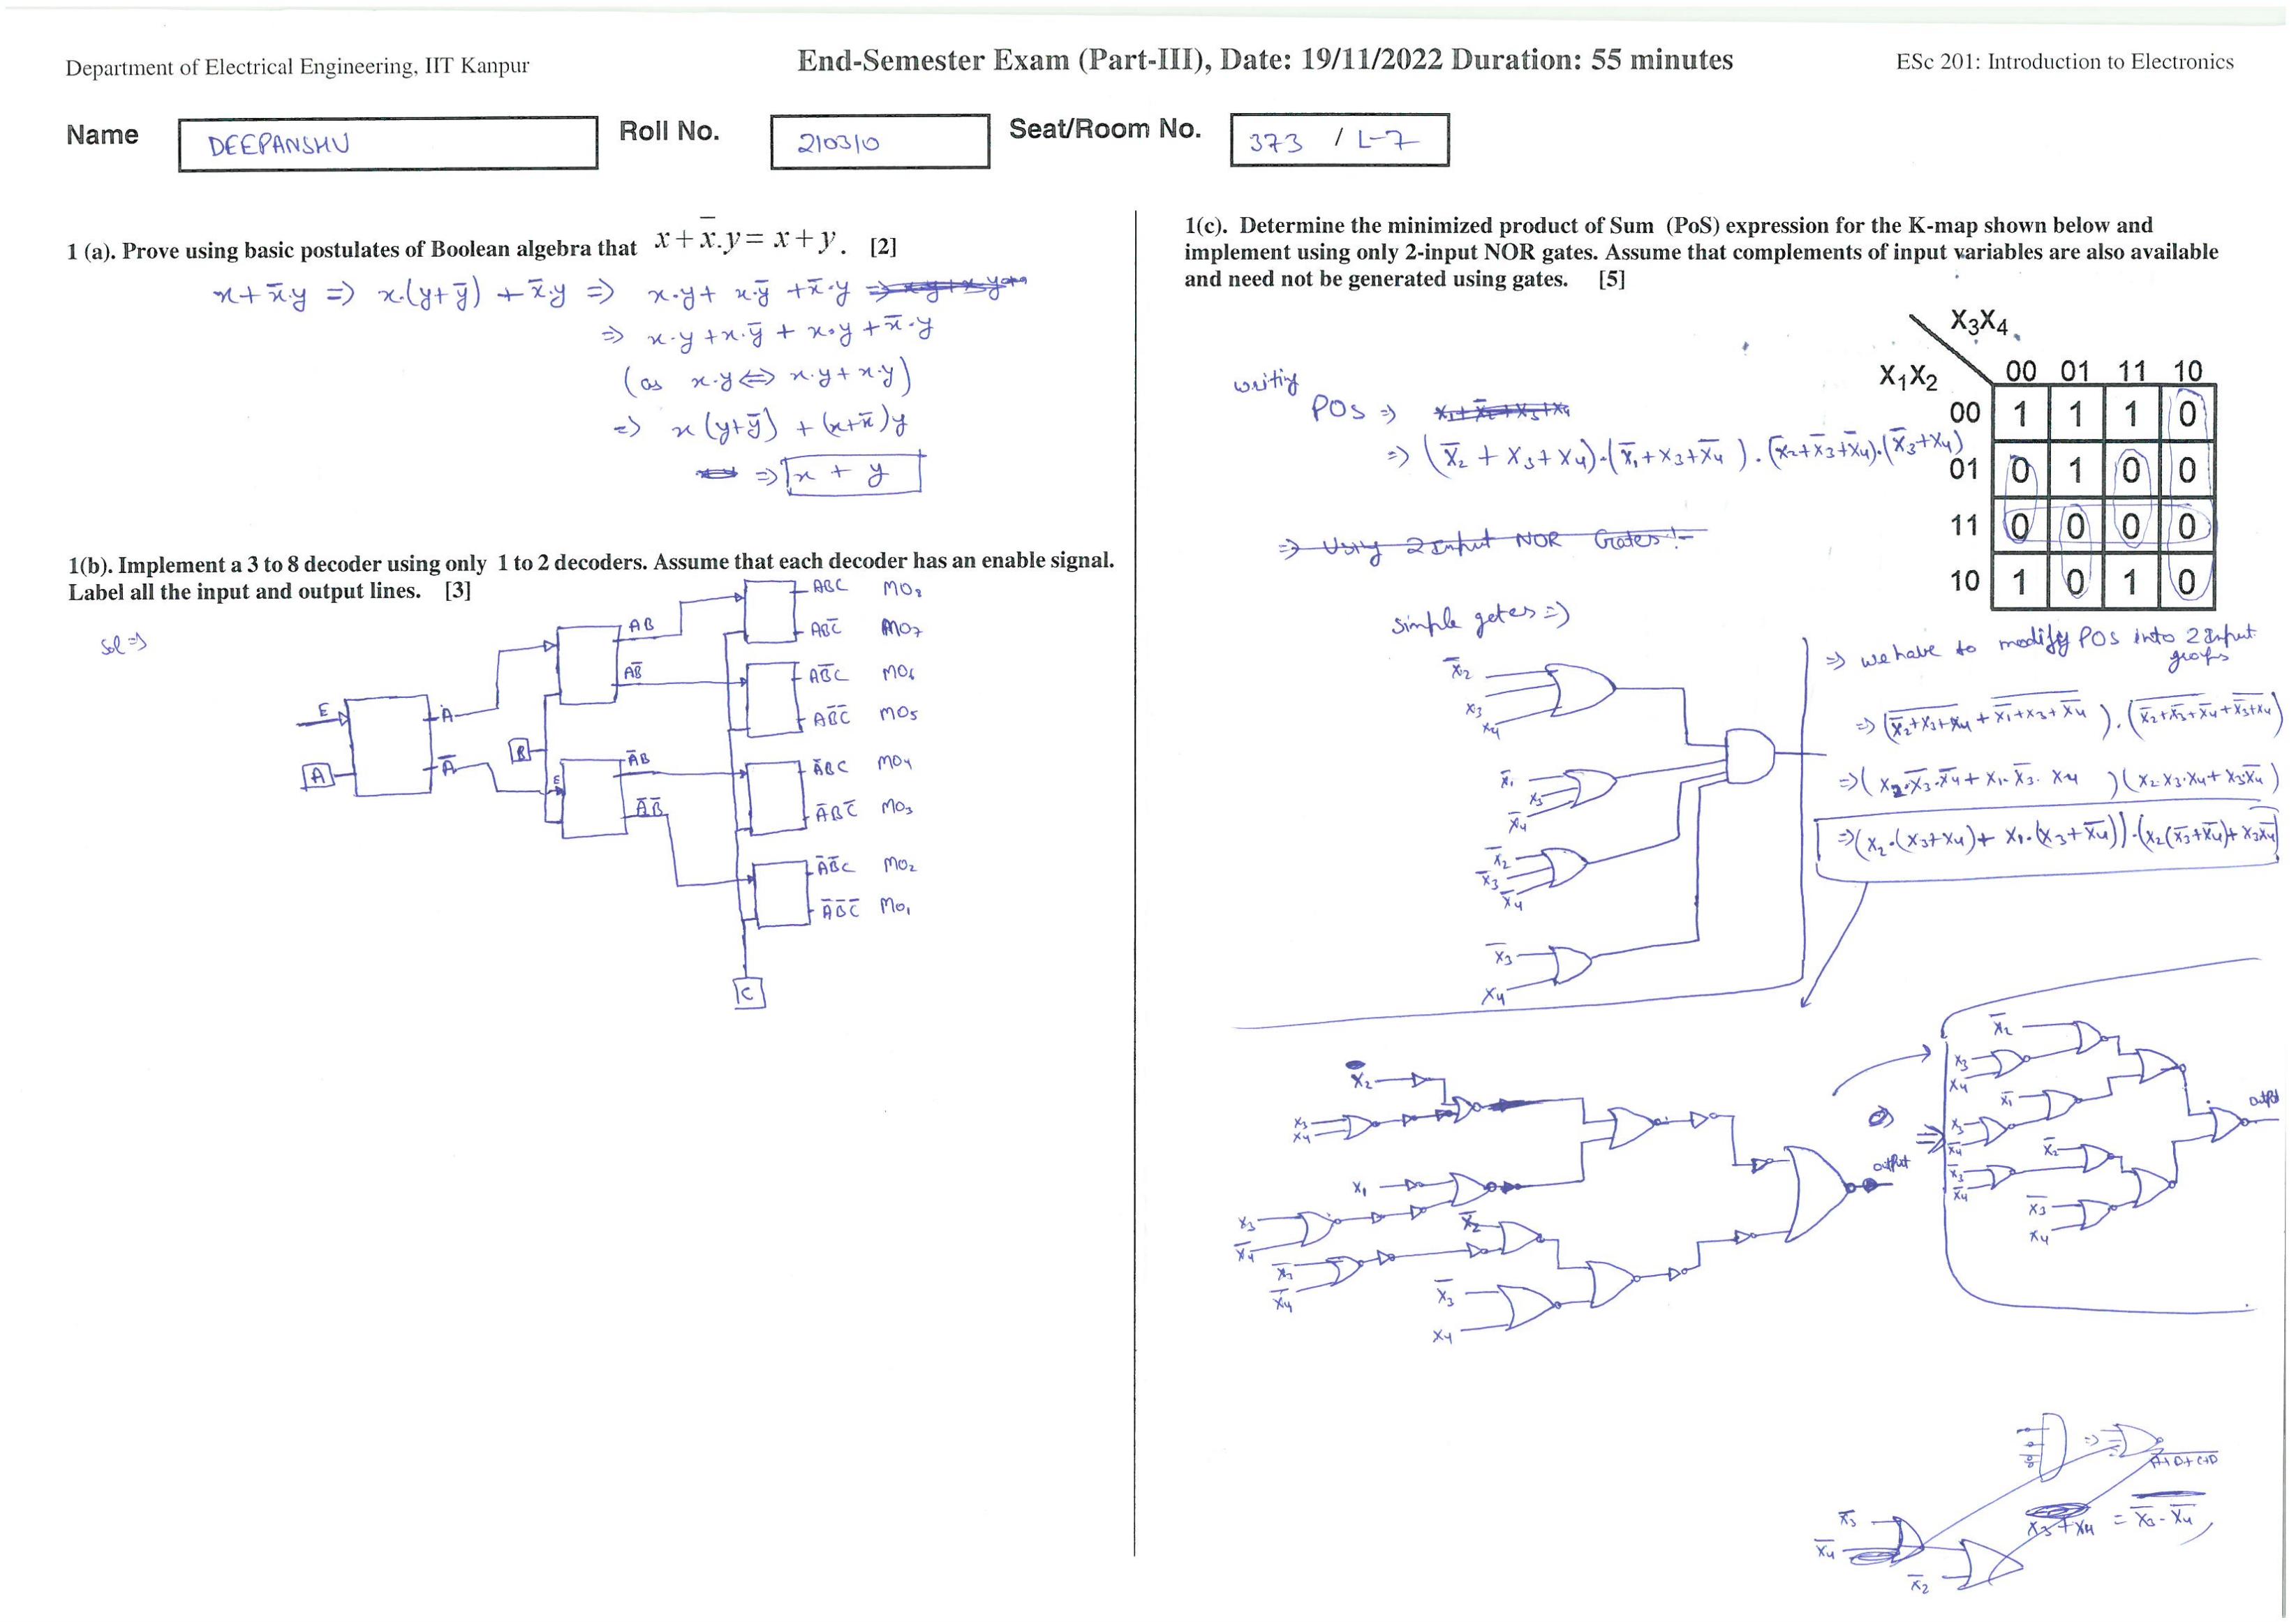 Department of Electrical Engineering, IIT Kanpur
End-Semester Exam (Part-III), Date: 19/11/2022 Duration: 55 minutes
ESc 201: Introduction to Electronics
Name DEEPANSHU Roll No. 210310 Seat/Room No. 373 / L-7
1 (a). Prove using basic postulates of Boolean algebra that x + x̅.y = x + y. [2]
x + x̅.y ⇒ x.(y+y̅) + x̅.y ⇒ x.y + x.y̅ + x̅.y
⇒ x.y + x.y̅ + x.y + x̅.y
(as x.y ⇔ x.y + x.y)
⇒ x(y+y̅) + (x+x̅)y
⇒ x + y
1(b). Implement a 3 to 8 decoder using only 1 to 2 decoders. Assume that each decoder has an enable signal.
Label all the input and output lines. [3]
Sol ⇒
E
A
A
A̅
B
E
AB
AB̅
A̅B
A̅B̅
ABC MO8
ABC̅ MO7
AB̅C MO6
AB̅C̅ MO5
A̅BC MO4
A̅BC̅ MO3
A̅B̅C MO2
A̅B̅C̅ MO1
C
1(c). Determine the minimized product of Sum (PoS) expression for the K-map shown below and
implement using only 2-input NOR gates. Assume that complements of input variables are also available
and need not be generated using gates. [5]
X3X4
X1X2 00 01 11 10
00 1 1 1 0
01 0 1 0 0
11 0 0 0 0
10 1 0 1 0
writing
POS ⇒
⇒ (X̅2 + X3 + X4).(X̅1 + X3 + X̅4).(X̅2 + X̅3 + X̅4).(X̅3 + X4)
⇒ Using 2 Input NOR Gates :-
simple gates ⇒
X̅2
X3
X4
X̅1
X3
X̅4
X̅2
X̅3
X̅4
X̅3
X4
⇒ we have to modify POS into 2 Input
groups
⇒ (X2.X̅3.X̅4 + X1.X̅3.X4)(X2.X3.X4 + X3X̅4)
⇒ (X2.(X3+X4) + X1.(X3+X̅4)).(X2(X̅3+X̅4) + X3X̅4)
X2
X3
X4
X1
X3
X̅4
X̅2
X̅3
X̅4
X̅3
X4
output
X̅2
X3
X4
X̅1
X3
X̅4
X̅2
X̅3
X̅4
X̅3
X4
output
A+B+C+D
X3 + X4 = X̅3 . X̅4
X̅3
X̅4
X̅2